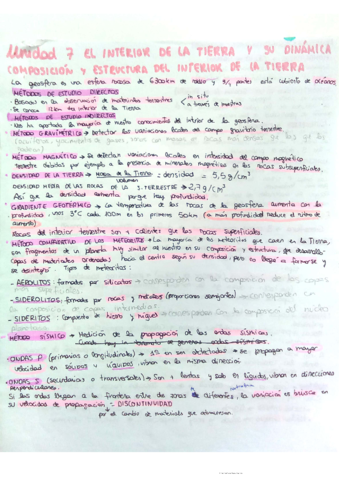 Unidad 7 EL INTERIOR DE LA TIERRA Y SU DINÁMICA
COMPOSICIÓN Y ESTRUCTURA DEL INTERIOR DE LA TIERRA
La geosfera es una esfera rocosa de 6300km de radio y 3/4 partes está cubierto de océanos
MÉTODOS DE ESTUDIO DIRECTOS
- Basados en la observación de materiales terrestres in situ
- Se conoce 12km del interior de la Tierra. a través de muestras
MÉTODOS DE ESTUDIO INDIRECTOS
- Nos ha aportado la mayoría de nuestro conocimiento del interior de la geosfera.
· MÉTODO GRAVIMÉTRICO → Detectar las variaciones locales del campo gravitatorio terrestre
· MÉTODO MAGNÉTICO → Se detectan variaciones locales en intensidad del campo magnético
terrestre debidas por ejemplo a la presencia de minerales magnéticos en las rocas subsuperficiales.
· DENSIDAD DE LA TIERRA → Masa de la Tierra : densidad = 5,5 g/cm³
volumen
DENSIDAD MEDIA DE LAS ROCAS DE LA S. TERRESTRE → 2,7 g/cm³
Así que la densidad aumenta porque hay profundidad.
· GRADIENTE GEOTÉRMICO → La temperatura de las rocas de la geosfera aumenta con la
profundidad. unos 3°C cada 100m en los primeros 50km (a más profundidad reduce el ritmo de
aumento)
Rocas del interior terrestre son + calientes que las rocas superficiales.
· MÉTODO COMPARATIVO DE LOS METEORITOS → La mayoría de los meteoritos que caen en la Tierra,
son fragmentos de un planeta muy similar al nuestro en su composición y estructura, que desarrolló
capas de materiales ordenadas hacia el centro según su densidad, pero no llegó a formarse y
se desintegró. Tipos de meteoritos:
- AEROLITOS: formados por silicatos
- SIDEROLITOS: formados por rocas y metales (proporciones semejantes)
- SIDERITOS: Compuesto de hierro y níquel
· MÉTODO SÍSMICO → Medición de la propagación de las ondas sísmicas.
Cuando hay un terremoto se generan ondas sísmicas.
· ONDAS P (primarias o longitudinales) → 1º en ser detectadas → Se propagan a mayor
velocidad en sólidos y líquidos vibran en la misma dirección
· ONDAS S (secundarias o transversales) → Son + lentas y solo en líquido, vibran en direcciones
perpendiculares.
Si las ondas llegan a la frontera entre dos zonas diferentes, la variación es brusca en
su velocidad de propagación = DISCONTINUIDAD
por el cambio de materiales que atraviesan